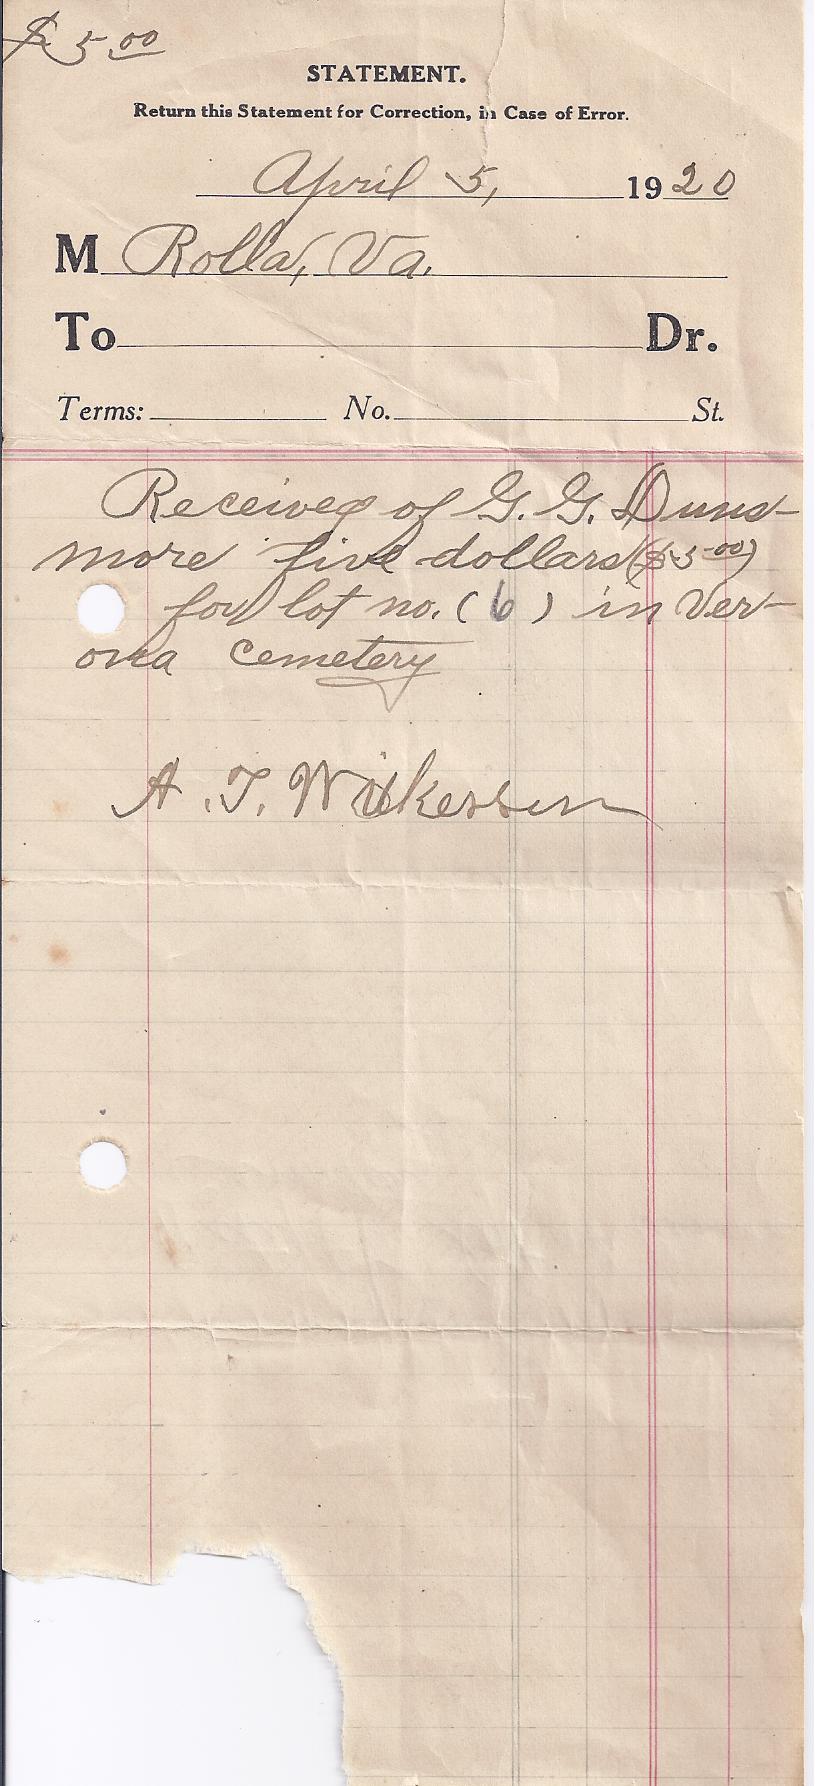 $ 5 00
STATEMENT.
Return this Statement for Correction, in Case of Error.
April 5, 1920
M Rolla, Va.
To Dr.
Terms: No. St.
Received of G. G. Duns-
more five dollars ($5.00)
for lot no. (6) in Ver-
ona cemetery
A. T. Wilkerson